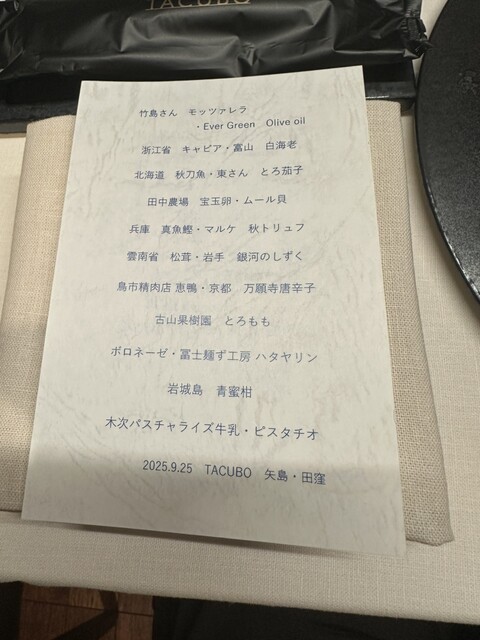 TACUBO
竹島さん　モッツァレラ
・Ever Green　Olive oil
浙江省　キャビア・富山　白海老
北海道　秋刀魚・東さん　とろ茄子
田中農場　宝玉卵・ムール貝
兵庫　真魚鰹・マルケ　秋トリュフ
雲南省　松茸・岩手　銀河のしずく
鳥市精肉店 恵鴨・京都　万願寺唐辛子
古山果樹園　とろもも
ボロネーゼ・冨士麺ず工房 ハタヤリン
岩城島　青蜜柑
木次パスチャライズ牛乳・ピスタチオ
2025.9.25　TACUBO　矢島・田窪